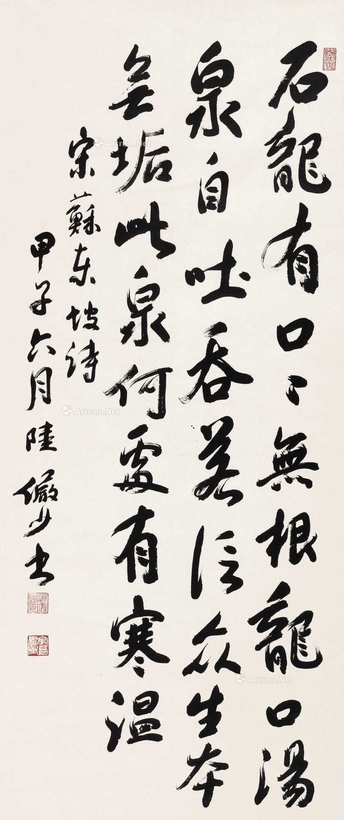 石龍有口〻無根龍口湯
泉自吐吞若信众生本
無垢此泉何處有寒温
宋蘇東坡詩
甲子六月陸儼少書
Artron.Net